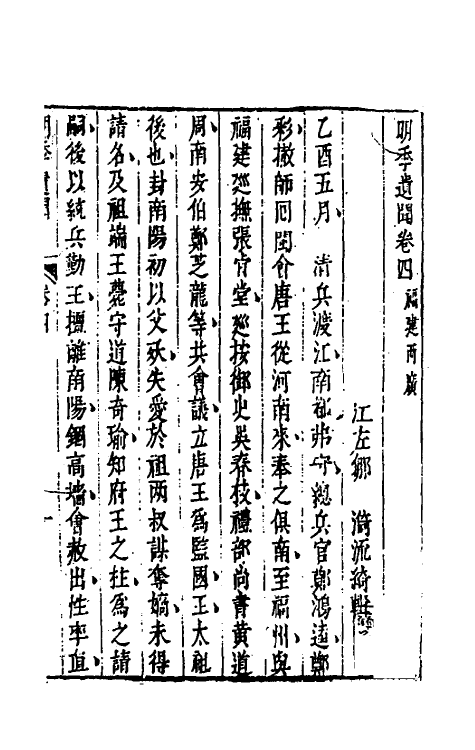 明季遺聞卷四 福建兩廣
江左鄒 漪流綺輯
乙酉五月 清兵渡江南都弗守總兵官鄭鴻逵鄭
彩撤師囘閩會唐王從河南來奉之俱南至福州與
福建廵撫張肯堂廵按御史吳春枝禮部尚書黃道
周南安伯鄭芝龍等共會議立唐王爲監國王太祖
後也封南陽初以父殀失愛於祖兩叔謀奪嫡未得
請名及祖端王薨守道陳奇瑜知府王之柱爲之請
嗣後以統兵勤王擅離南陽錮高墻會赦出性率直
明季遺聞 卷四 一